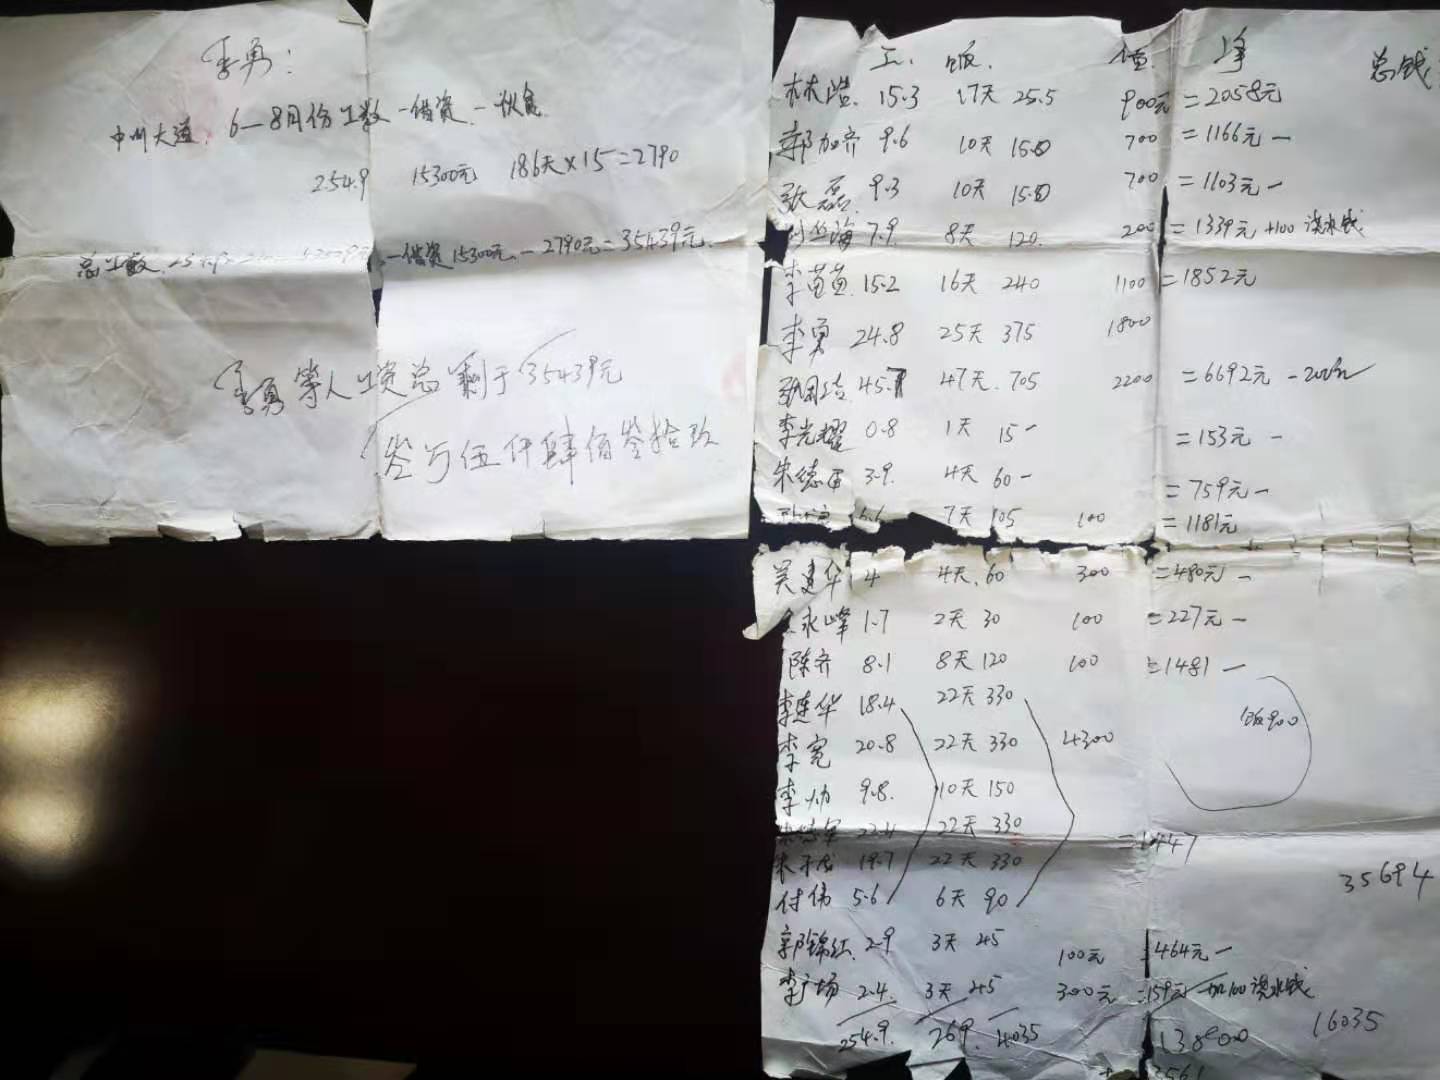 李勇：
中州大道：6—8月份工数－借资－伙食
254.9 15300元 186天×15=2790
总工数 －借资15300元－2790元=35439元
李勇等人工资总剩于35439元
叁万伍仟肆佰叁拾玖
工 饭 借 净 总钱
林皓 15.3 17天 25.5 900元 =2058元
郭加齐 9.6 10天 150 700 =1166元－
张磊 9.3 10天 150 700 =1103元－
7.9 8天 120 200 =1339元 +100浇水钱
李苗苗 15.2 16天 240 1100 =1852元
李勇 24.8 25天 375 1800
45.7 47天 705 2200 =6692元
李光耀 0.8 1天 15－ =153元－
朱德 3.9 4天 60－ =759元－
7天 105 100 =1181元
吴建华 4 4天 60 300 =480元－
永峰 1.7 2天 30 100 =227元－
陈齐 8.1 8天 120 100 =1481－
李连华 18.4 22天 330
李宽 20.8 22天 330 4300 饭900
李 9.8 10天 150
22.4 22天 330
19.7 22天 330 =1447
付伟 5.6 6天 90 35694
郭锦红 2.9 3天 45 100元 =464元－
李广场 2.4 3天 45 300元 =159元 加100浇水钱
254.9 269 4035 13800 16035
3561